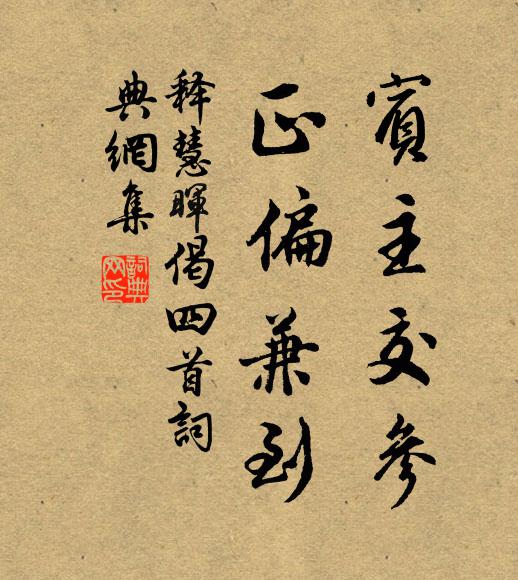 賓主交參
正偏兼到
釋慧暉偈四首詞
典網集
詞典網印